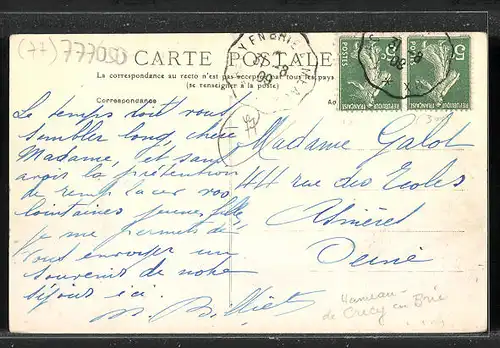 (77) 777050
CARTE POSTALE
La correspondance au recto n'est pas acceptée par tous les pays
(se renseigner à la poste)
Correspondance
Le temps doit vous
sembler long, chère
Madame, et sans
avoir la prétention
de remplacer vos
lointaines jeunes filles,
je me permets de
vous envoyer un
souvenir de notre
séjour ici.
Madame Galot
44 rue des Ecoles
Asnières
Seine
Hameau
de Crécy en Brie
POSTES
5
RÉPUBLIQUE FRANÇAISE
POSTES
5
RÉPUBLIQUE FRANÇAISE